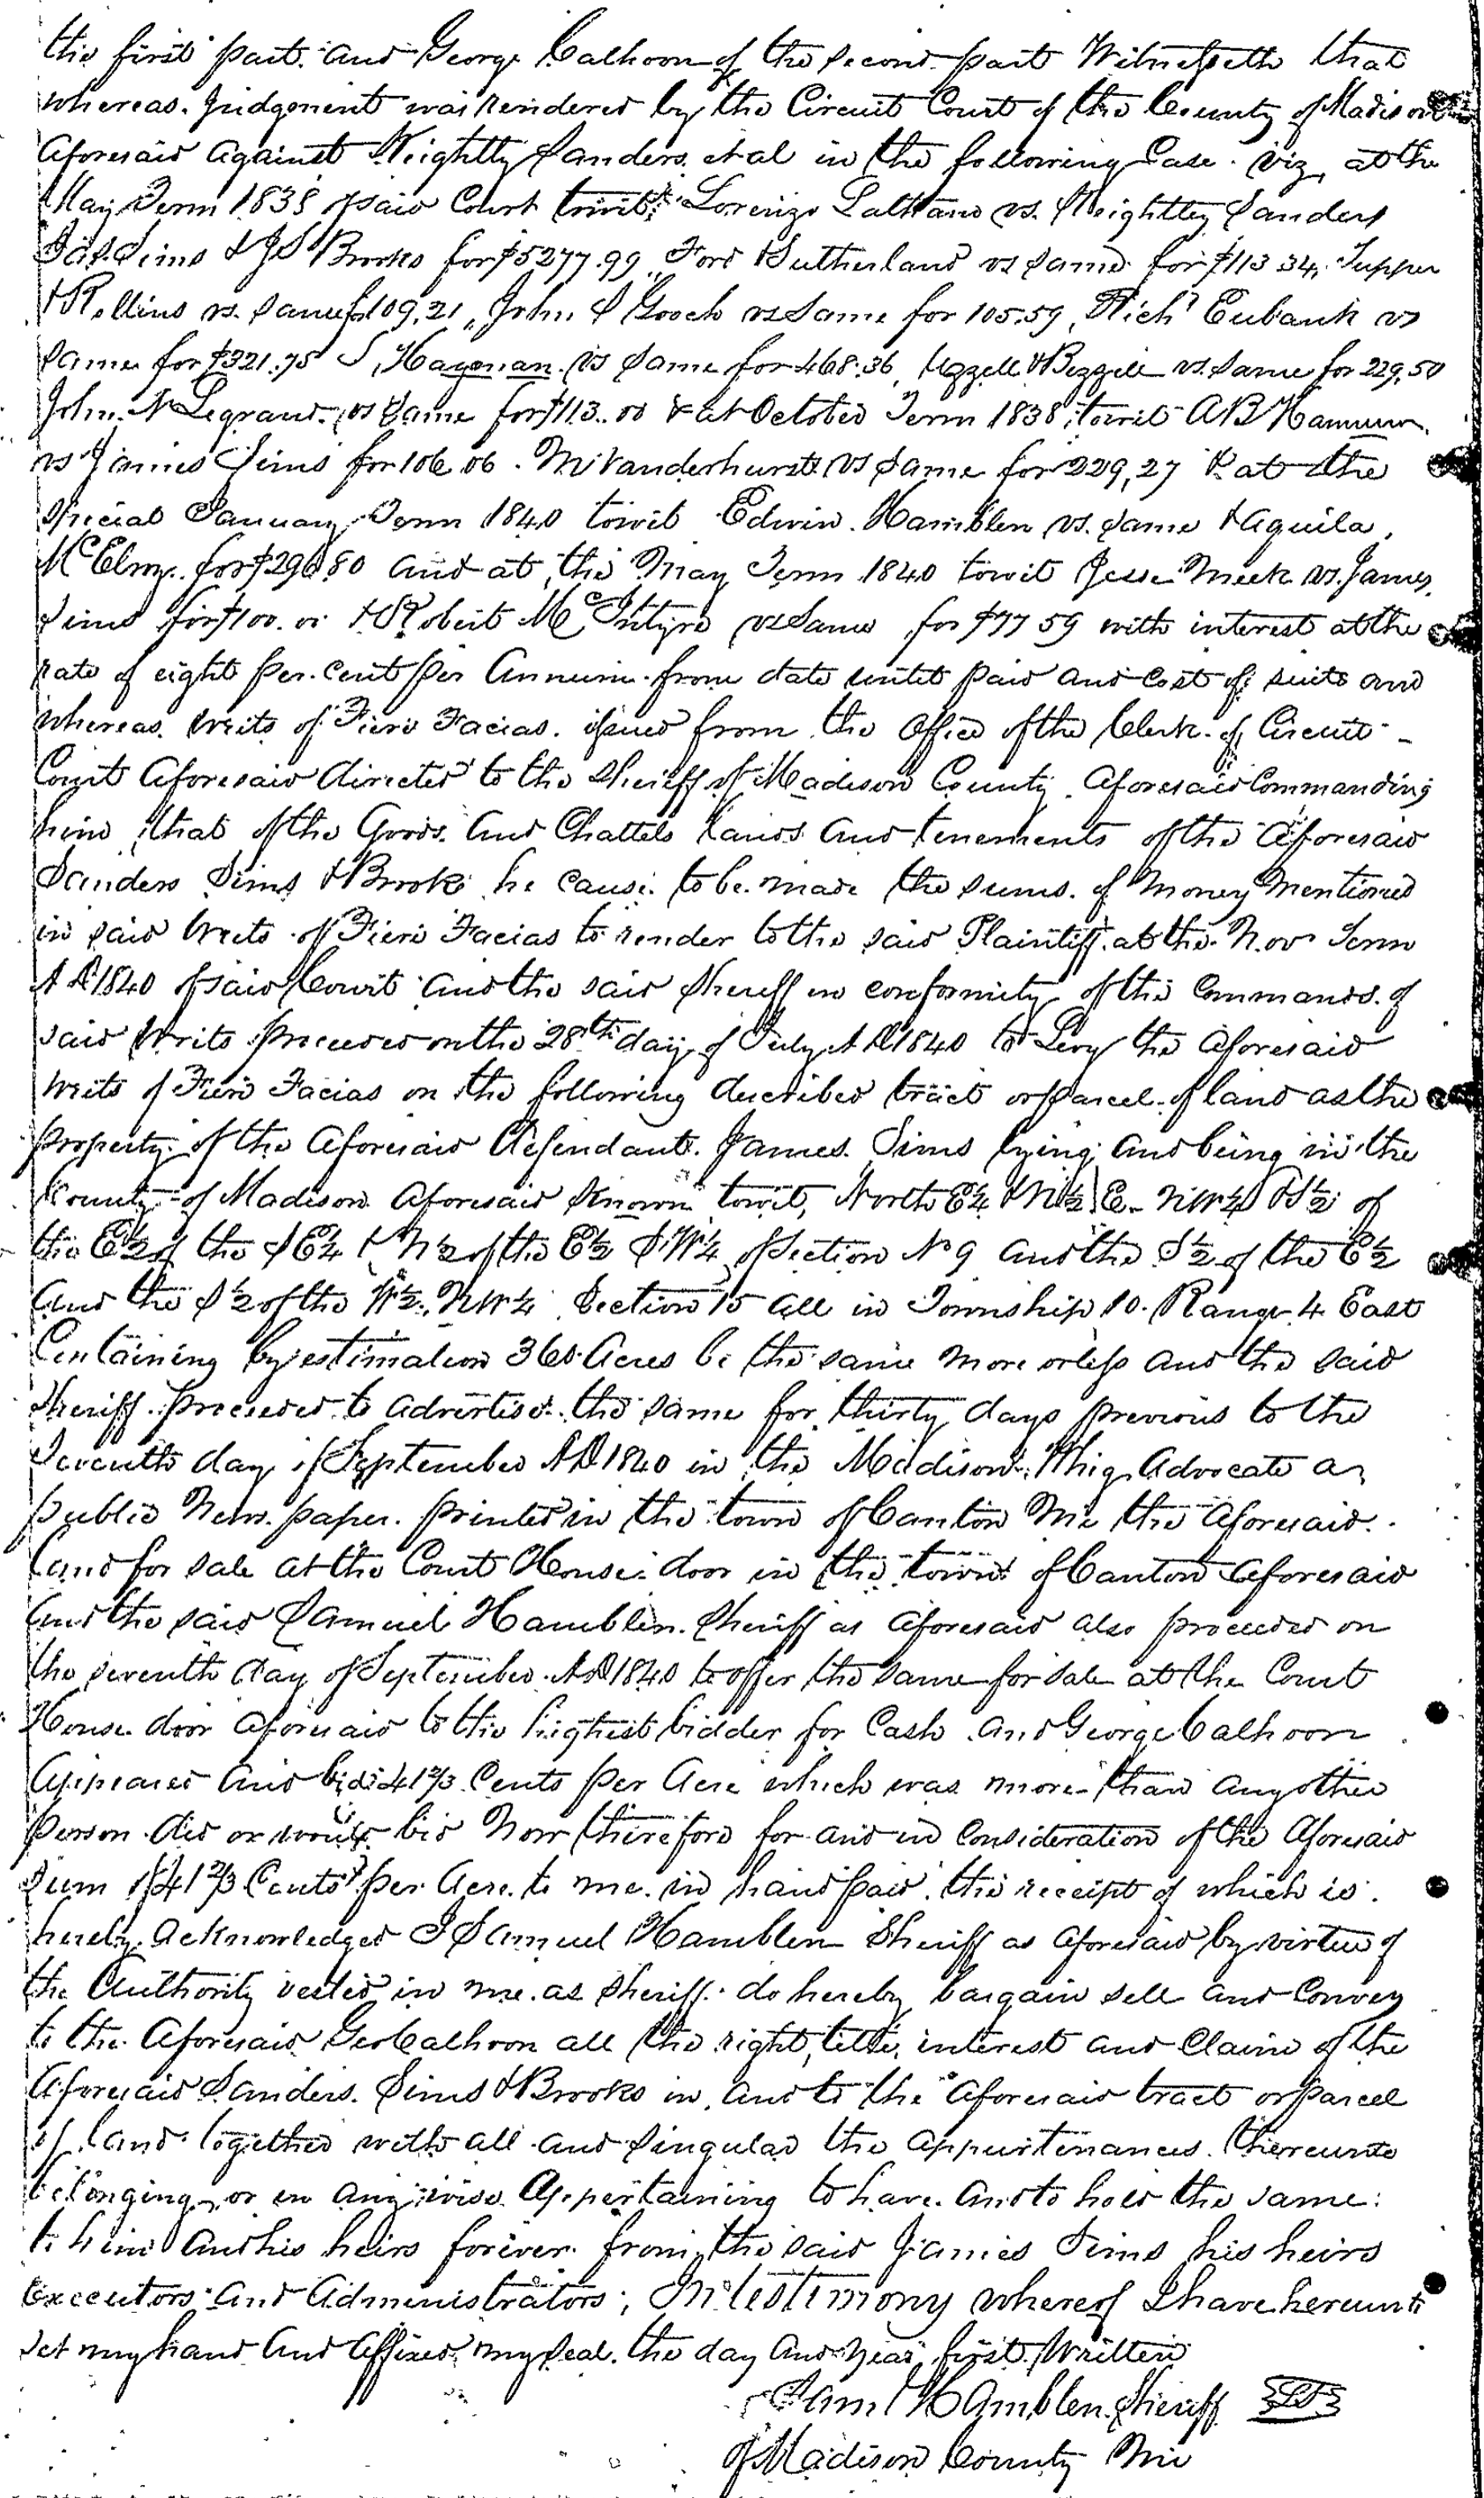 the first part and George Calhoon of the second part Witnesseth that
whereas Judgement was rendered by the Circuit Court of the County of Madison
aforesaid against Keightley Sanders et al in the following Case viz, at the
May Term 1838 of said Court towit Lorenzo vs. Keightley Sanders
Jas. Sims & J S Brooks for $5277.99, Ford & Sutherland vs Same for $113 34, Tupper
& Rollins vs. Same for 109,21, John S Gooch vs Same for 105.59, Richd Eubank vs
Same for $321.75 S, Hagenan vs Same for 468.36, Uzzell & Bizzell vs. Same for 229,50
John N Legrand vs Same for $113.00 & at October Term 1838 towit A B
vs James Sims for 106.06. M Vanderhurst vs Same for 229,27 & at the
special January Term 1840 towit Edwin Hamblen vs. Same & Aquila
McElroy for 80 and at the May Term 1840 towit Jesse Meek vs. James
Sims for $100.00 & Robert McIntyre vs Same for $77 59 with interest at the
rate of eight per cent per Annum from date until paid and cost of suits and
whereas writs of Fieri Facias issued from the office of the Clerk of Circuit
Court aforesaid directed to the Sheriff of Madison County aforesaid Commanding
him that of the Goods and Chattels lands and tenements of the aforesaid
Sanders Sims & Brooks he cause to be made the sums of Money Mentioned
in said writs of Fieri Facias to render to the said Plaintiff at the Nov Term
A D 1840 of said Court and the said Sheriff in conformity of the commands of
said writs proceeded on the 28th day of July A D 1840 to Levy the aforesaid
writs of Fieri Facias on the following described tract or parcel of land as the
property of the aforesaid defendant James Sims lying and being in the
County of Madison aforesaid Known towit, North E¼ & N½ E- NW¼ & S½ of
the E½ of the S E¼ & N ½ of the E½ S.W¼ of Section No 9 and the S½ of the E½
and the S½ of the W½ N W¼ Section 15 all in Township 10. Range 4 East
Containing by estimation 360 Acres be the same more or less and the said
Sheriff proceeded to advertise the same for thirty days previous to the
Seventh day of September A D 1840 in the Madison Whig Advocate a
public News paper printed in the town of Canton Mi the aforesaid
land for sale at the Court House door in the town of Canton aforesaid
and the said Samuel Hamblen Sheriff as aforesaid also proceeded on
the seventh day of September A D 1840 to offer the same for sale at the Court
House door aforesaid to the highest bidder for Cash and George Calhoon
appeared and bid 41⅔ Cents per Acre which was more than any other
person did or would bid Now therefore for and in consideration of the aforesaid
sum of 41⅔ Cents per Acre to me in hand paid the receipt of which is
hereby acknowledged I Samuel Hamblen Sheriff as aforesaid by virtue of
the Authority vested in me as Sheriff do hereby bargain sell and Convey
to the aforesaid Geo Calhoon all the right, title, interest and Claim of the
aforesaid Sanders Sims & Brooks in and to the aforesaid tract or parcel
of land together with all and singular the appurtenances thereunto
belonging or in any wise appertaining to have and to hold the same
to him and his heirs forever from the said James Sims his heirs
executors and Administrators; In testimony whereof I have hereunto
set my hand and affixed my seal the day and year first written
Saml Hamblen Sheriff LS
of Madison County Mi